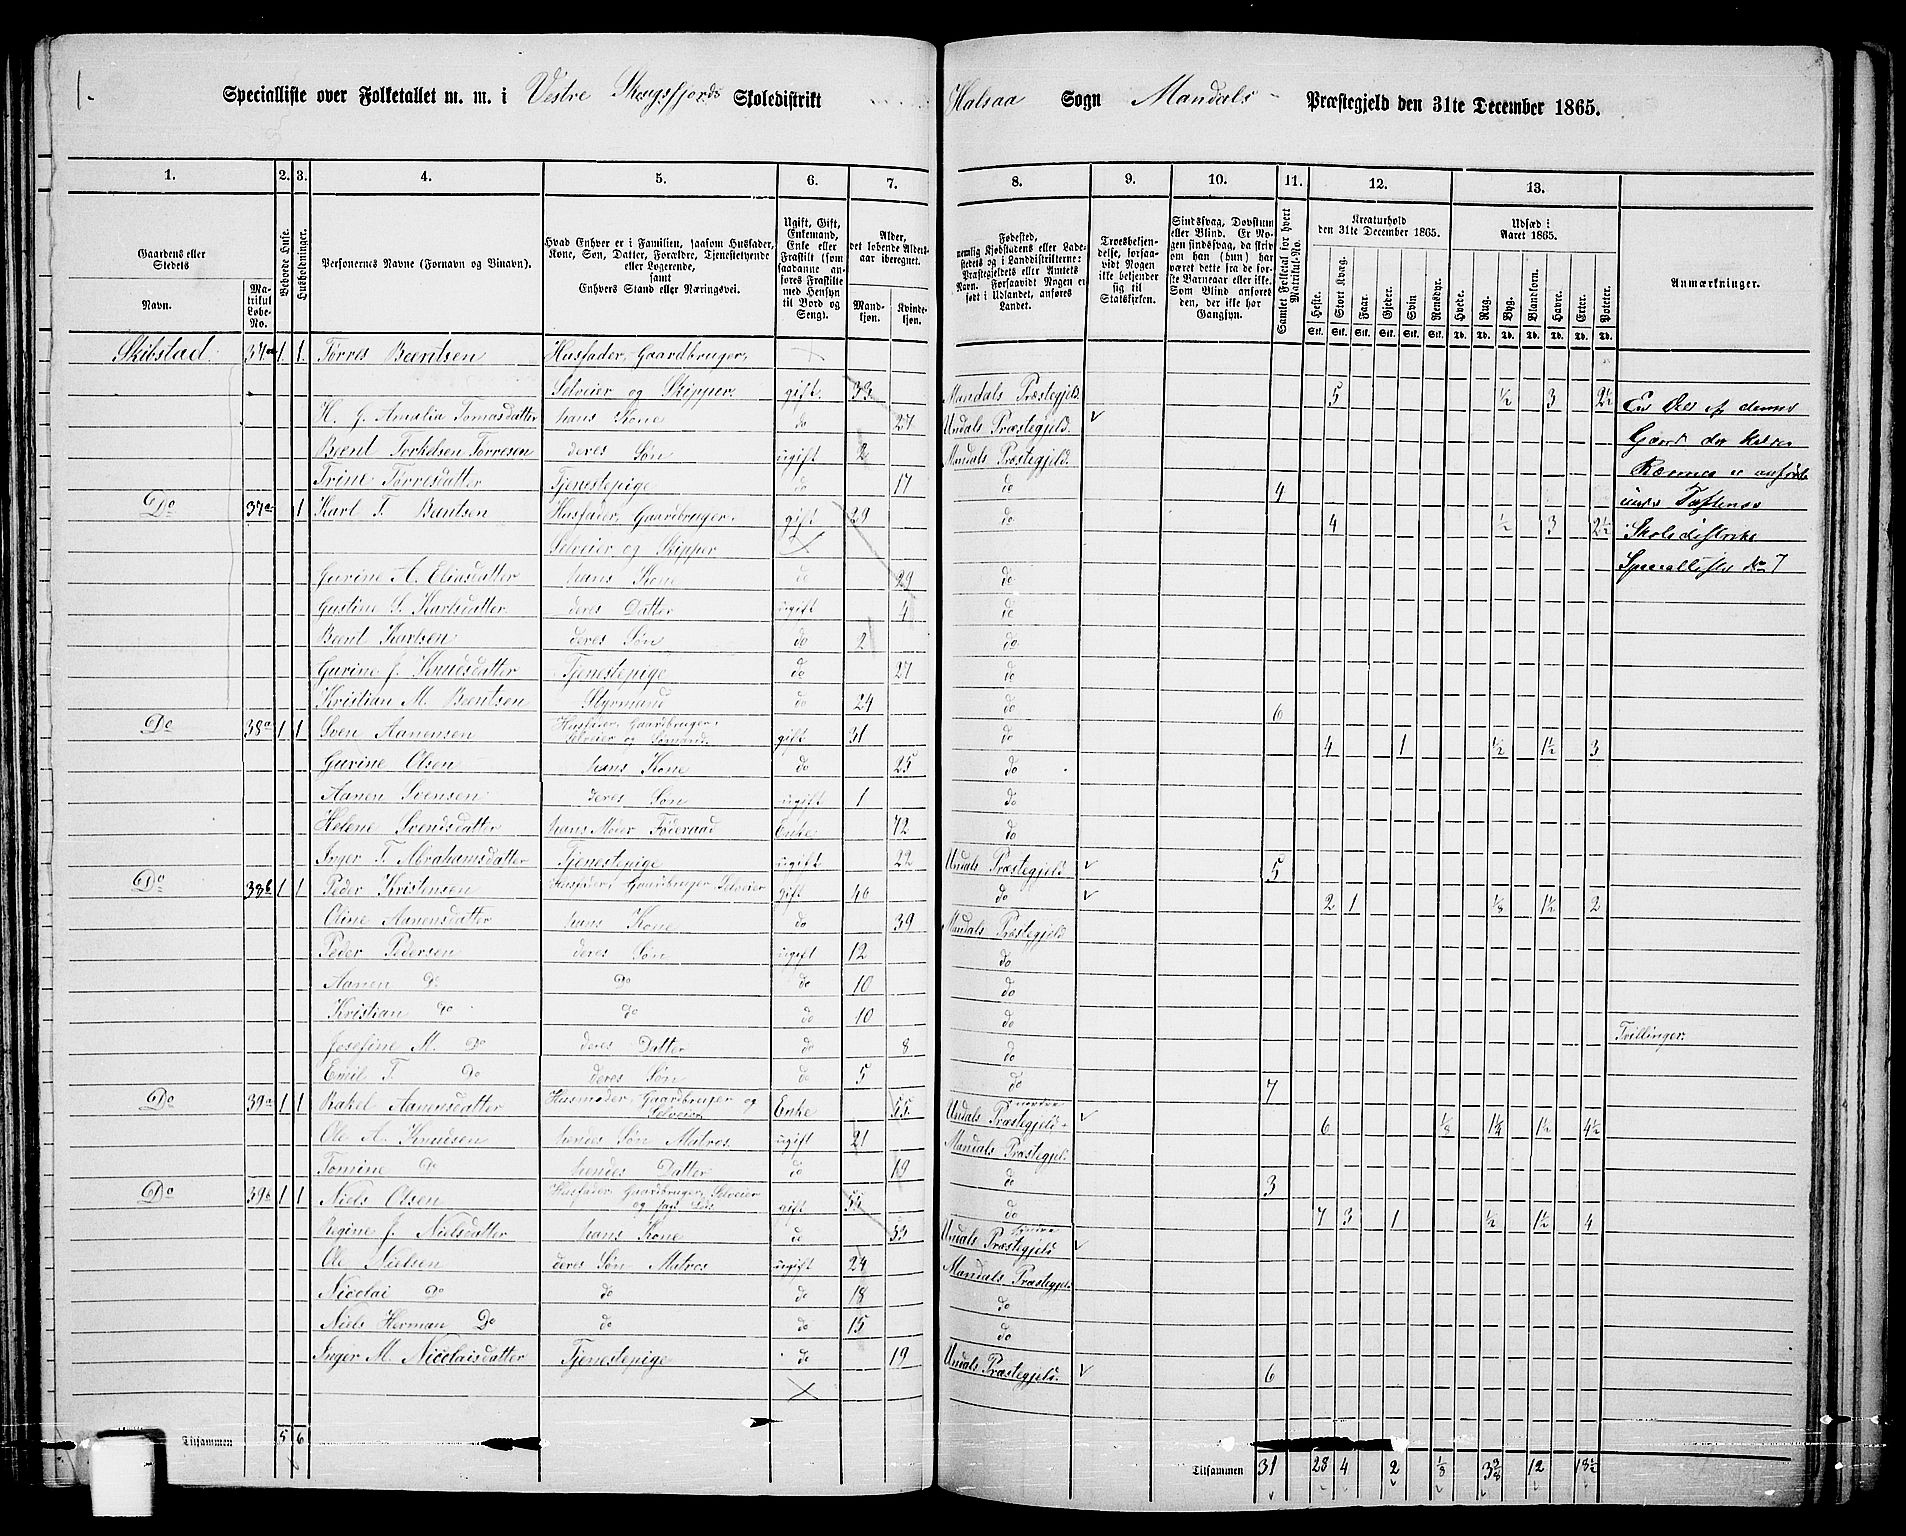 1.
Specialliste over Folketallet m. m. i Vestre Skogsfjords Skoledistrikt
Halsaa Sogn Mandals Præstegjeld den 31te December 1865.
1. 2. 3. 4. 5. 6. 7. 8. 9. 10. 11. 12. 13.
Gaardens eller Stedets Navn. Matrikul Løbe-No.
Beboede Huse.
Husholdninger.
Personernes Navne (Fornavn og Binavn).
Hvad Enhver er i Familien, saasom Husfader, Kone, Søn, Datter, Forældre, Tjenestetyende eller Logerende, samt Enhvers Stand eller Næringsvei.
Ugift, Gift, Enkemand, Enke eller Fraskilt (som saadanne anføres Fraskilte med Hensyn til Bord og Seng).
Alder, det løbende Alders-aar iberegnet.
Mandkjøn. Kvindekjøn.
Fødested, nemlig Kjøbstadens eller Ladestedets og i Landdistrikterne: Præstegjeldets eller Amtets Navn. Forsaavidt Nogen er født i Udlandet, anføres Landet.
Troesbekjendelse, forsaavidt Nogen ikke bekjender sig til Statskirken.
Sindssvag, Døvstum eller Blind. Er Nogen sindssvag, da skrives om han (hun) har været dette fra de første Barneaar eller ikke. Som Blind anføres den, der ikke har Gangsyn.
Samlet Folketal for hvert Matrikul-No.
Kreaturhold den 31te December 1865.
Heste. Stort Kvæg. Faar. Gjeder. Svin Rensdyr.
Udsæd i Aaret 1865.
Hvede. Rug. Byg. Blandkorn. Havre. Erter. Poteter.
Anmærkninger.
Skibstad 37a 1. 1. Torres Beentsen Husfader, Gaardbruger,
Selveier og Skipper. gift. 33 Mandals Præstegjeld 5 ½ 3 2½
H. J. Amalia Tomasdatter hans Kone do 27 Undals Præstegjeld.
Beent Torkelsen Torresen deres Søn ugift 2 Mandals Præstegjeld.
Trine Torresdatter Tjenestepige do 17 do 4
En Del af denne
Gaard
under
Skoledistrikt
Specialliste No 7
Do 37a 1 Karl T. Bentsen Husfader, Gaardbruger. gift 29 do 4 ½ 3 2½
Selveier og Skipper
Gurine A. Eliasdatter hans Kone do 29 do
Gustine S. Karlsdatter. deres Datter ugift 4 do
Beent Karlsen deres Søn do 2 do
Gurine J. Knudsdatter Tjenestepige do 27 do
Kristian M. Beentsen Styrmand do 24 do 6
Do 38a 1 1 Sven Aanensen Husfader, Gaardbruger, Selveier og Sømand. gift 31 do 4 1 ½ 1½ 3
Gurine Olsen hans Kone do 25 do
Aanen Svensen deres Søn ugift 1 do
Helene Svendsdatter hans Moder Føderaad Enke 72 do
Inger T. Abrahamsdatter Tjenestepige ugift 22 Undals Præstegjeld 5
Do 38b 1 1 Peder Kristensen Husfader, Gaardbruger Selveier gift 40 do 2 1 ⅛ 1½ 2
Oline Aanensdatter hans Kone do 39 Mandals Præstegjeld
Peder Pedersen deres Søn ugift 12 do
Aanen Do Do do 10 do
Kristian do do do 10 do Tvillinger.
Josefine M. Do deres Datter do 8 do
Emil T. Do deres Søn do 5 do 7
Do 39a 1 1 Rakel Aanensdatter Husmoder, Gaardbruger og Selveier Enke 55 Undals Præstegjeld 6 ⅛ 1¼ 1½ 4½
Ole A. Knudsen hendes Søn Matros. ugift 21 Mandals Præstegjel.
Tomine Do hendes Datter do 19 do 3
Do 39b 1 1 Niels Olsen Husfader, Gaardbruger, Selveier gift do 7 3 1 ½ 1½ 4
Regine J. Nielsdatter hans Kone do 53 Undals Præstegjeld
Ole Nielsen deres Søn Matros ugift 24 Mandals Præstegjel.
Nicolai Do do do 18 do
Niels Herman Do do do 15 do
Inger M. Nicolaisdatter Tjenestepige do 19 Undals Præstegjeld. 6
Tilsammen 5 6
Tilsammen 31 28 4 2 ⅛ 3⅜ 12 18½